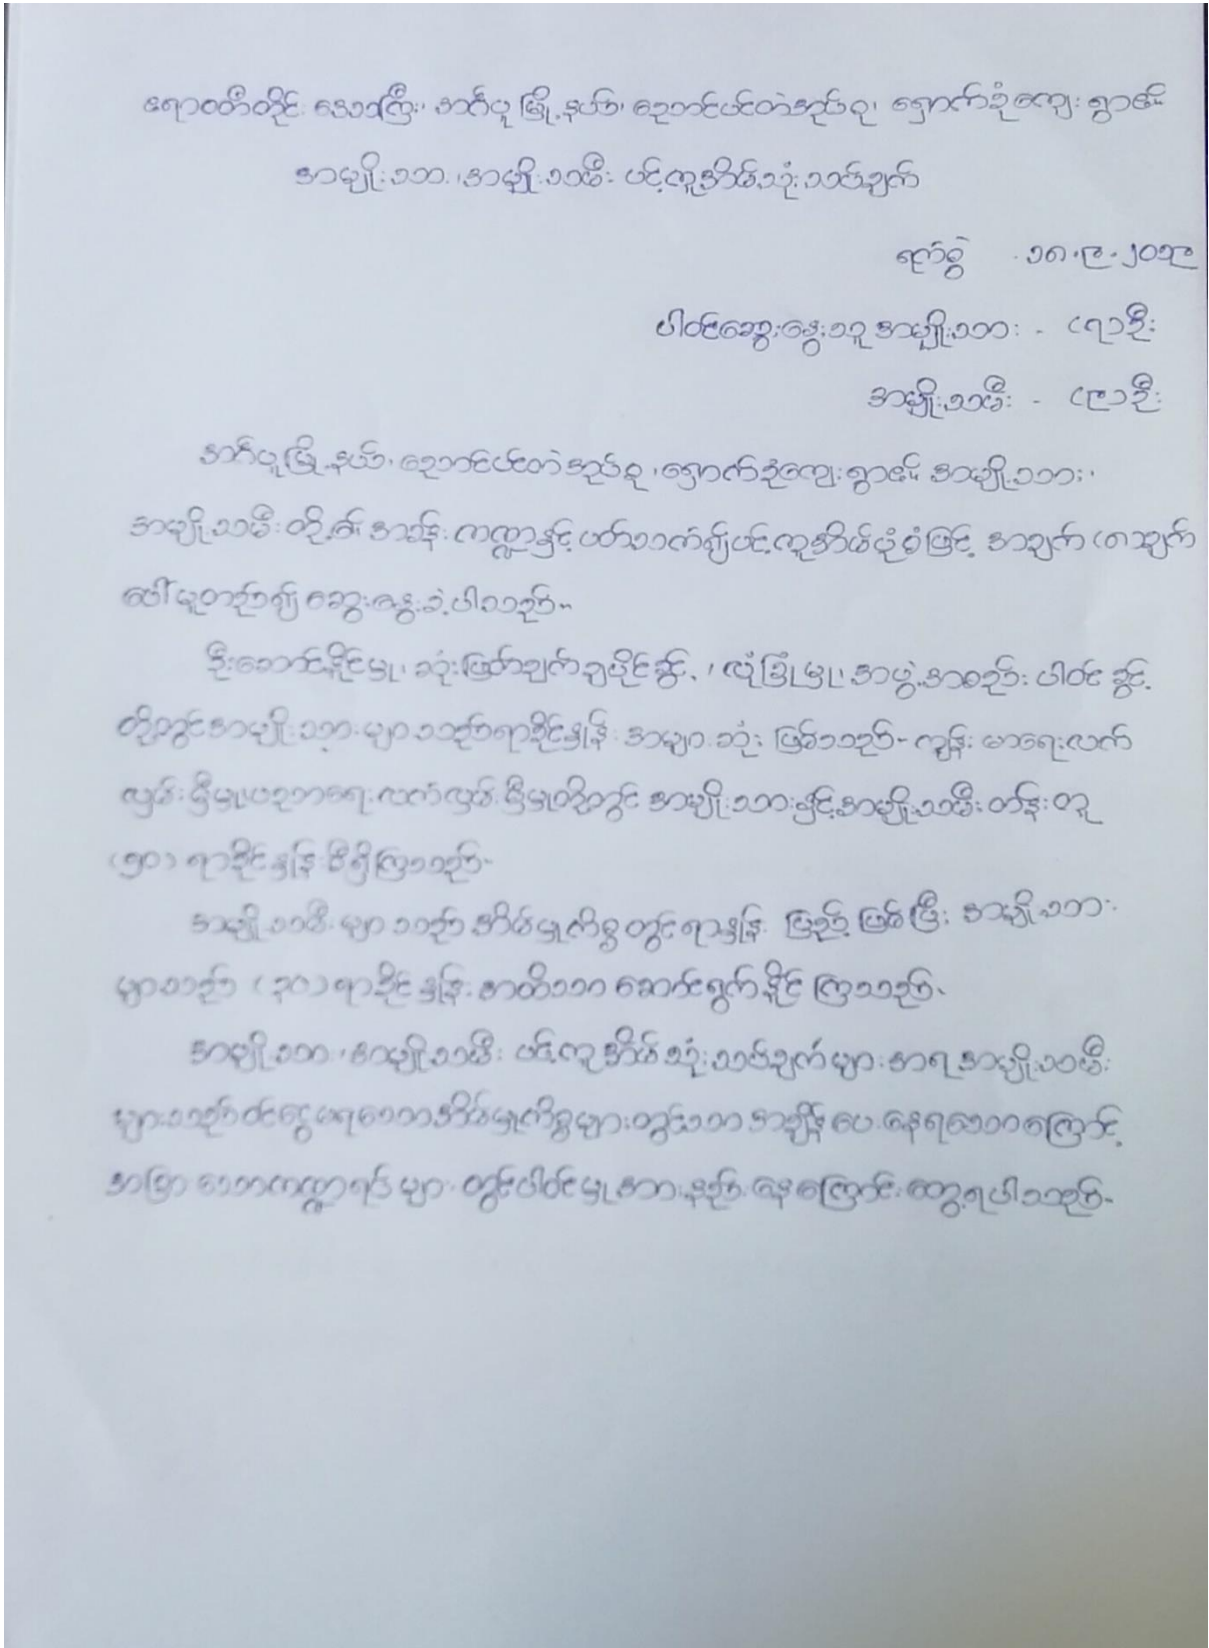 ဧရာဝတီတိုင်းဒေသကြီး၊ အင်္ဂပူမြို့နယ်၊ ညောင်ပင်တဲအုပ်စု၊ ရှောက်ခုံကျေးရွာ၏
အမျိုးသား၊ အမျိုးသမီး ပင့်ကူအိမ်သုံးသပ်ချက်
ရက်စွဲ - ၁၈.၉.၂၀၁၉
ပါဝင်ဆွေးနွေးသူ အမျိုးသား - (၇)ဦး
အမျိုးသမီး - (၉)ဦး
အင်္ဂပူမြို့နယ်၊ ညောင်ပင်တဲအုပ်စု၊ ရှောက်ခုံကျေးရွာ၏ အမျိုးသား၊
အမျိုးသမီးတို့၏ အခန်းကဏ္ဍနှင့်ပတ်သက်၍ပင့်ကူအိမ်ပုံစံဖြင့် အချက်(၈)ချက်
ပေါ်မူတည်၍ ဆွေးနွေးခဲ့ပါသည်။
ဦးဆောင်နိုင်မှု၊ ဆုံးဖြတ်ချက်ချပိုင်ခွင့်၊ လုံခြုံမှု၊ အဖွဲ့အစည်းပါဝင်ခွင့်
တို့တွင်အမျိုးသားများသည်ရာခိုင်နှုန်း အများဆုံး ဖြစ်သည်။ ကျန်းမာရေးလက်
လှမ်းမှီမှု၊ပညာရေးလက်လှမ်းမှီမှုတို့တွင် အမျိုးသားနှင့်အမျိုးသမီးတန်းတူ
(၅၀) ရာခိုင်နှုန်းစီရှိကြသည်။
အမျိုးသမီးများသည် အိမ်မှုကိစ္စတွင်ရာနှုန်းပြည့်ဖြစ်ပြီး အမျိုးသား
များသည် (၃၀)ရာခိုင်နှုန်းအထိသာ ဆောင်ရွက်နိုင်ကြသည်။
အမျိုးသား၊ အမျိုးသမီး ပင့်ကူအိမ်သုံးသပ်ချက်များအရ အမျိုးသမီး
များသည်ဝင်ငွေမရသောအိမ်မှုကိစ္စများတွင်သာ အချိန်ပေးနေရသောကြောင့်
အခြားသောကဏ္ဍရပ်များတွင်ပါဝင်မှုအားနည်းနေကြောင်းတွေ့ရပါသည်။